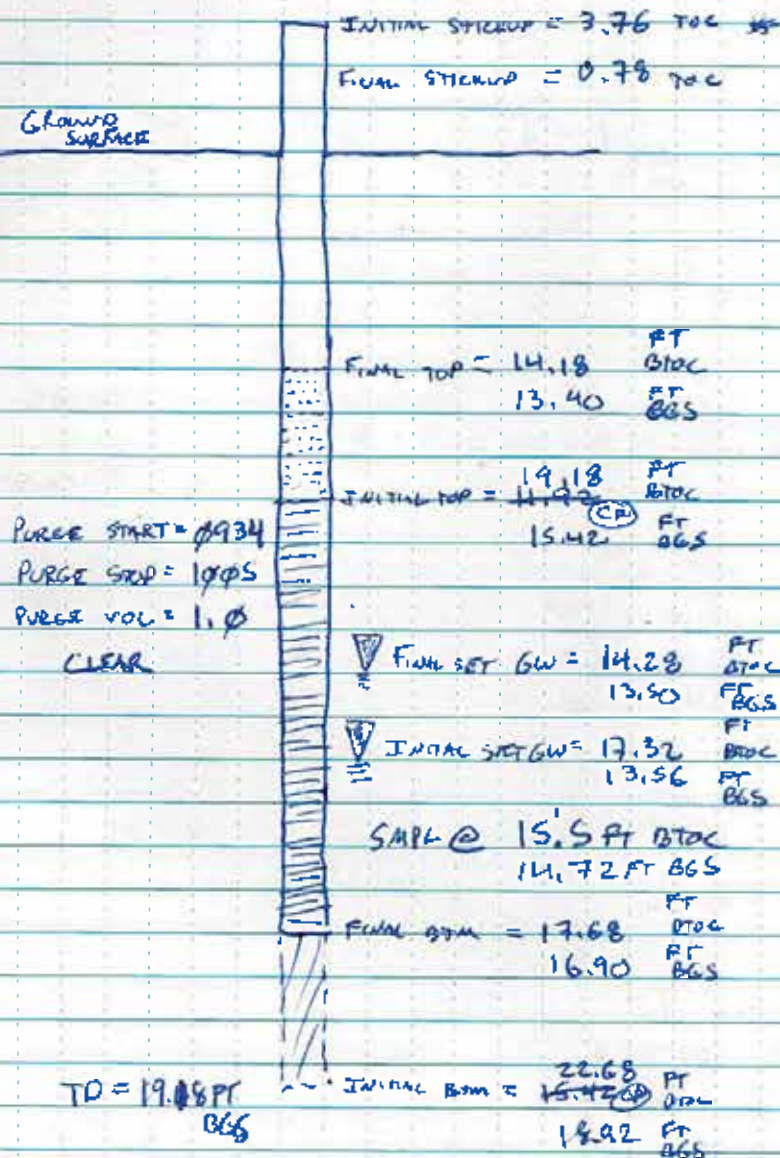 INITIAL STICKUP = 3.76 TOC
FINAL STICKUP = 0.78 TOC
GROUND
SURFACE
FINAL TOP = 14.18 FT BTOC
13.40 FT BGS
INITIAL TOP = 19.18 FT BTOC
CP
15.42 FT BGS
PURGE START = 0934
PURGE STOP = 1005
PURGE VOL = 1.0
CLEAR
FINAL SET GW = 14.28 FT BTOC
13.50 FT BGS
INITIAL SET GW = 17.32 FT BTOC
13.56 FT BGS
SMPL @ 15.5 FT BTOC
14.72 FT BGS
FINAL BTM = 17.68 FT BTOC
16.90 FT BGS
TD = 19.18 FT
BGS
INITIAL BTM = 22.68 FT BTOC
15.42 CP
18.92 FT BGS